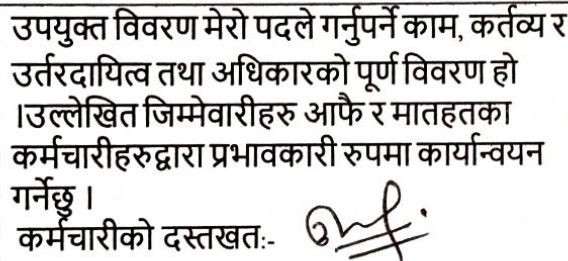 उपयुक्त विवरण मेरो पदले गर्नुपर्ने काम, कर्तव्य र
उर्तरदायित्व तथा अधिकारको पूर्ण विवरण हो
।उल्लेखित जिम्मेवारीहरु आफै र मातहतका
कर्मचारीहरुद्वारा प्रभावकारी रुपमा कार्यान्वयन
गर्नेछु ।
कर्मचारीको दस्तखतः-